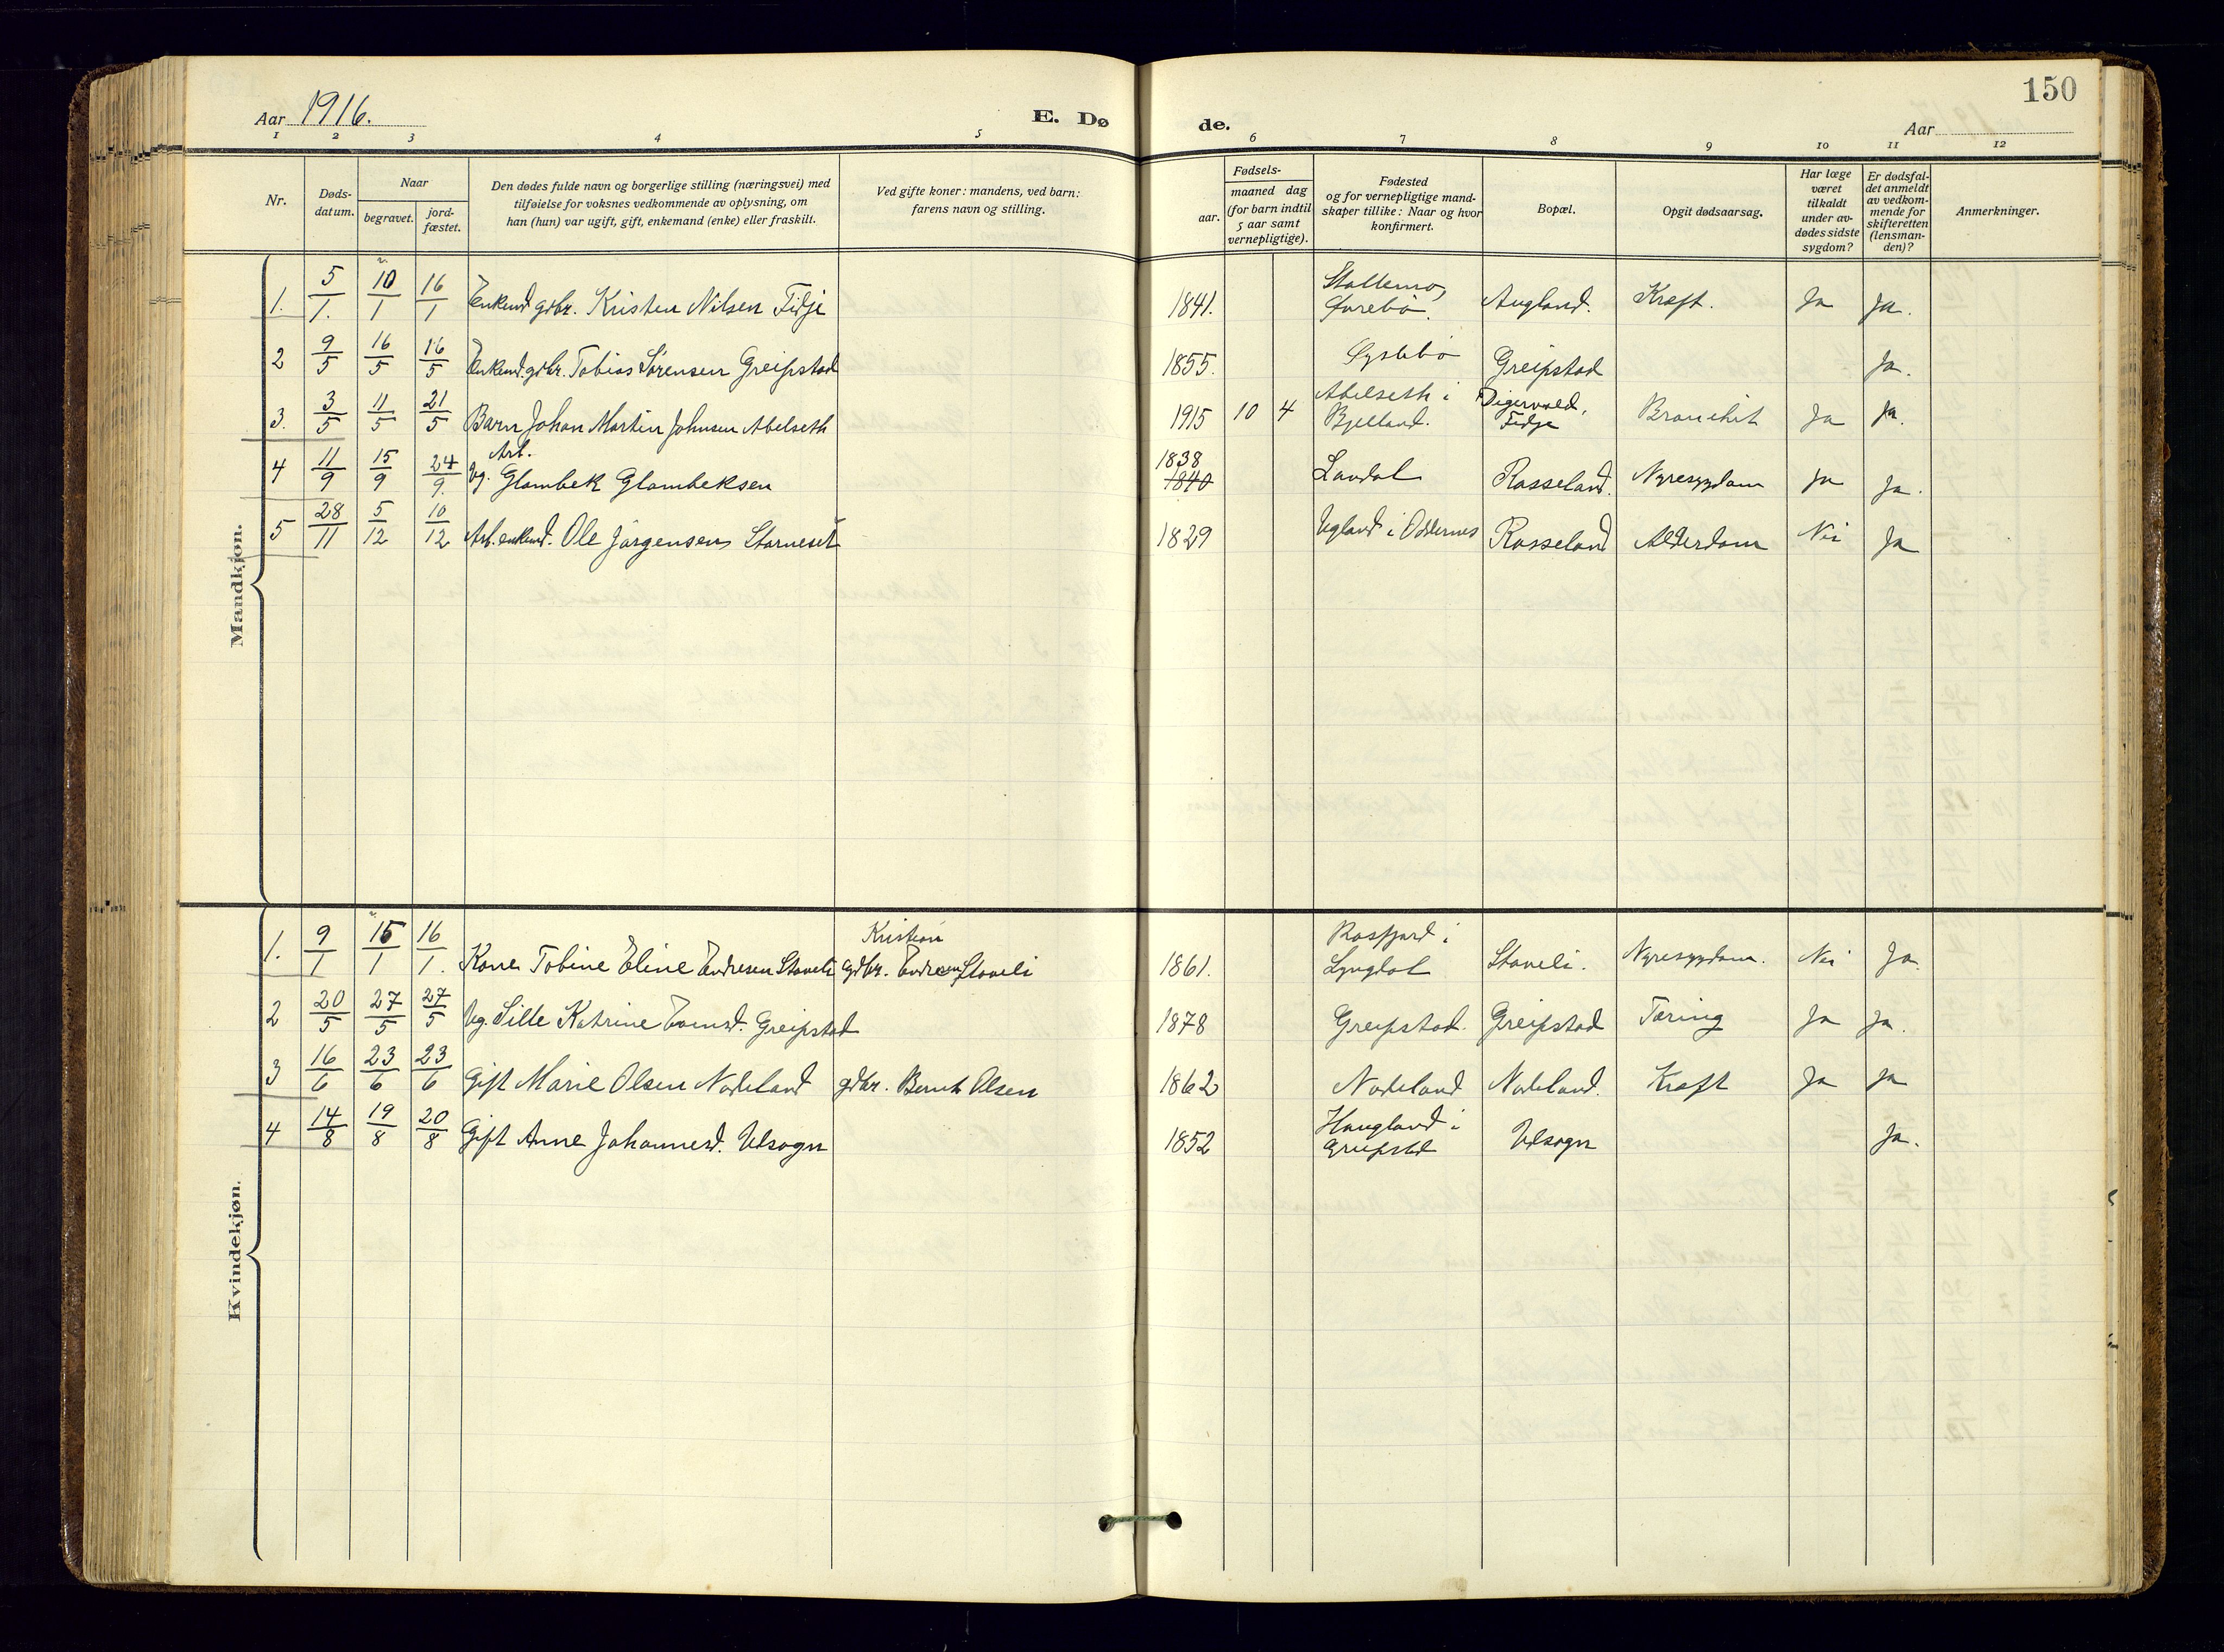 Aar 1916.
E. Dø
de.
150
Aar
1 2 3 4 5 6 7 8 9 10 11 12
Nr.
Døds-
datum.
Naar
begravet.
jord-
fæstet.
Den dødes fulde navn og borgerlige stilling (næringsvei) med
tilføielse for voksnes vedkommende av oplysning, om
han (hun) var ugift, gift, enkemand (enke) eller fraskilt.
Ved gifte koner: mandens, ved barn:
farens navn og stilling.
Fødsels-
aar.
maaned dag
(for barn indtil
5 aar samt
vernepligtige).
Fødested
og for vernepligtige mand-
skaper tillike: Naar og hvor
konfirmert.
Bopæl.
Opgit dødsaarsag.
Har læge
været
tilkaldt
under av-
dødes sidste
sygdom?
Er dødsfal-
det anmeldt
av vedkom-
mende for
skifteretten
(lensman-
den)?
Anmerkninger.
Mandkjøn.
1. 5/1. 10/1 16/1 Enkemd gdbr. Kristen Nilsen Fidje 1841. Stallemo, Øvrebø. Augland. Kræft. Ja Ja.
2 9/5 16/5 16/5 Enkemd. gdbr. Tobias Sørensen Greipstad 1855. Greipstad Ja.
3. 3/5 11/5 21/5 Barn Johan Martin Johnsen Abelseth 1915 10 4 Abelseth i Bjelland. Digervold, Fidje Bronchit Ja Ja.
4 11/9 15/9 24/9. Arb. Ug. Glambek Glambeksen 1838 1840 Laudal Rosseland. Nyresygdom Ja Ja.
5 28/11 5/12 10/12 Arb. enkemd. Ole Jørgensen Storneset 1829 Ugland i Oddernes Rosseland Alderdom Nei Ja
Kvindekjøn.
1. 9/1 15/1 16/1. Kone Tobine Eline Endresen Stoveli Kristian gdbr. Endresen Stoveli 1861. Rosfjord i Lyngdal Stoveli. Nyresygdom. Nei Ja.
2 20/5 27/5 27/5 Ug. Sille Katrine Evensd. Greipstad 1878 Greipstad. Greipstad Tæring Ja Ja.
3 16/6 23/6 23/6 Gift Marie Olsen Nodeland gdbr. Bernt Olsen 1862 Nodeland Nodeland. Kræft Ja Ja
4 14/8 19/8 20/8 Gift Anne Johannesd. Udsogn 1852 Haugland i Greipstd Udsogn Ja.